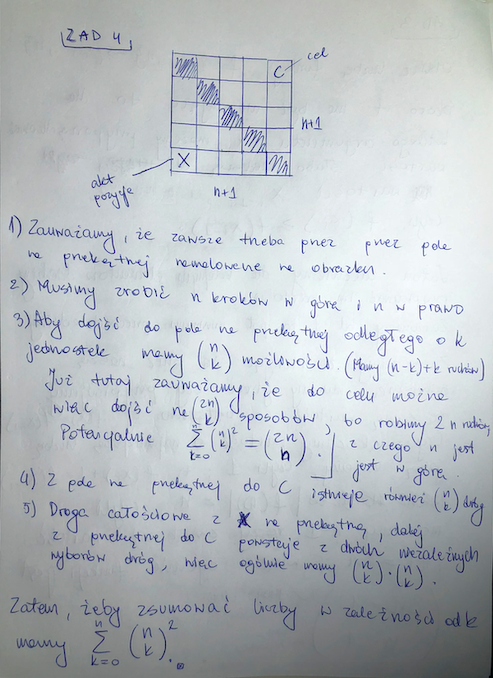 ZAD 4
C
cel
n+1
X
akt
pozycja
n+1
1) Zauważamy, że zawsze trzeba przez przez pole
na przekątnej namalowane na obrazku.
2) Musimy zrobić n kroków w górę i n w prawo
3) Aby dojść do pola na przekątnej odległego o k
jednostek mamy (n k) możliwości. (Mamy (n-k)+k ruchów)
Już tutaj zauważamy, że do celu można
więc dojść na (2n n) sposobów, bo robimy 2n ruchów,
z czego n jest
jest w górę.
Potencjalnie ∑_{k=0}^{n} (n k)² = (2n n).
4) Z pola na przekątnej do C istnieje również (n k) dróg
5) Droga całościowa z X na przekątną, dalej
z przekątnej do C powstaje z dwóch niezależnych
wyborów dróg, więc ogólnie mamy (n k)·(n k).
Zatem, żeby zsumować liczby w zależności od k
mamy ∑_{k=0}^{n} (n k)².